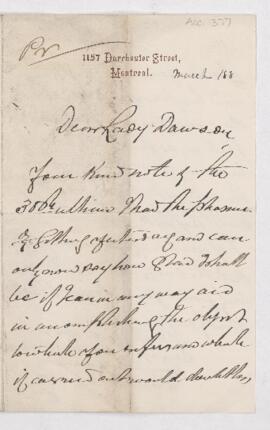 Acc. 357
Pr
1157 Dorchester Street,
Montreal.
March 188
Dear Lady Dawson
Your kind note of the
30th ultimo I had the pleasure
of getting yesterday and can
only now say how glad I shall
be if I can in any way aid
in accomplishing the object
to which you refer and which
if carried out would doubtless